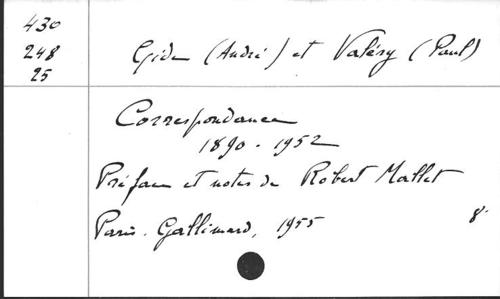 430
248
25
Gide (André) et Valéry (Paul)
Correspondance
1890-1952
Préface et notes de Robert Mallet
Paris. Gallimard, 1955 8°